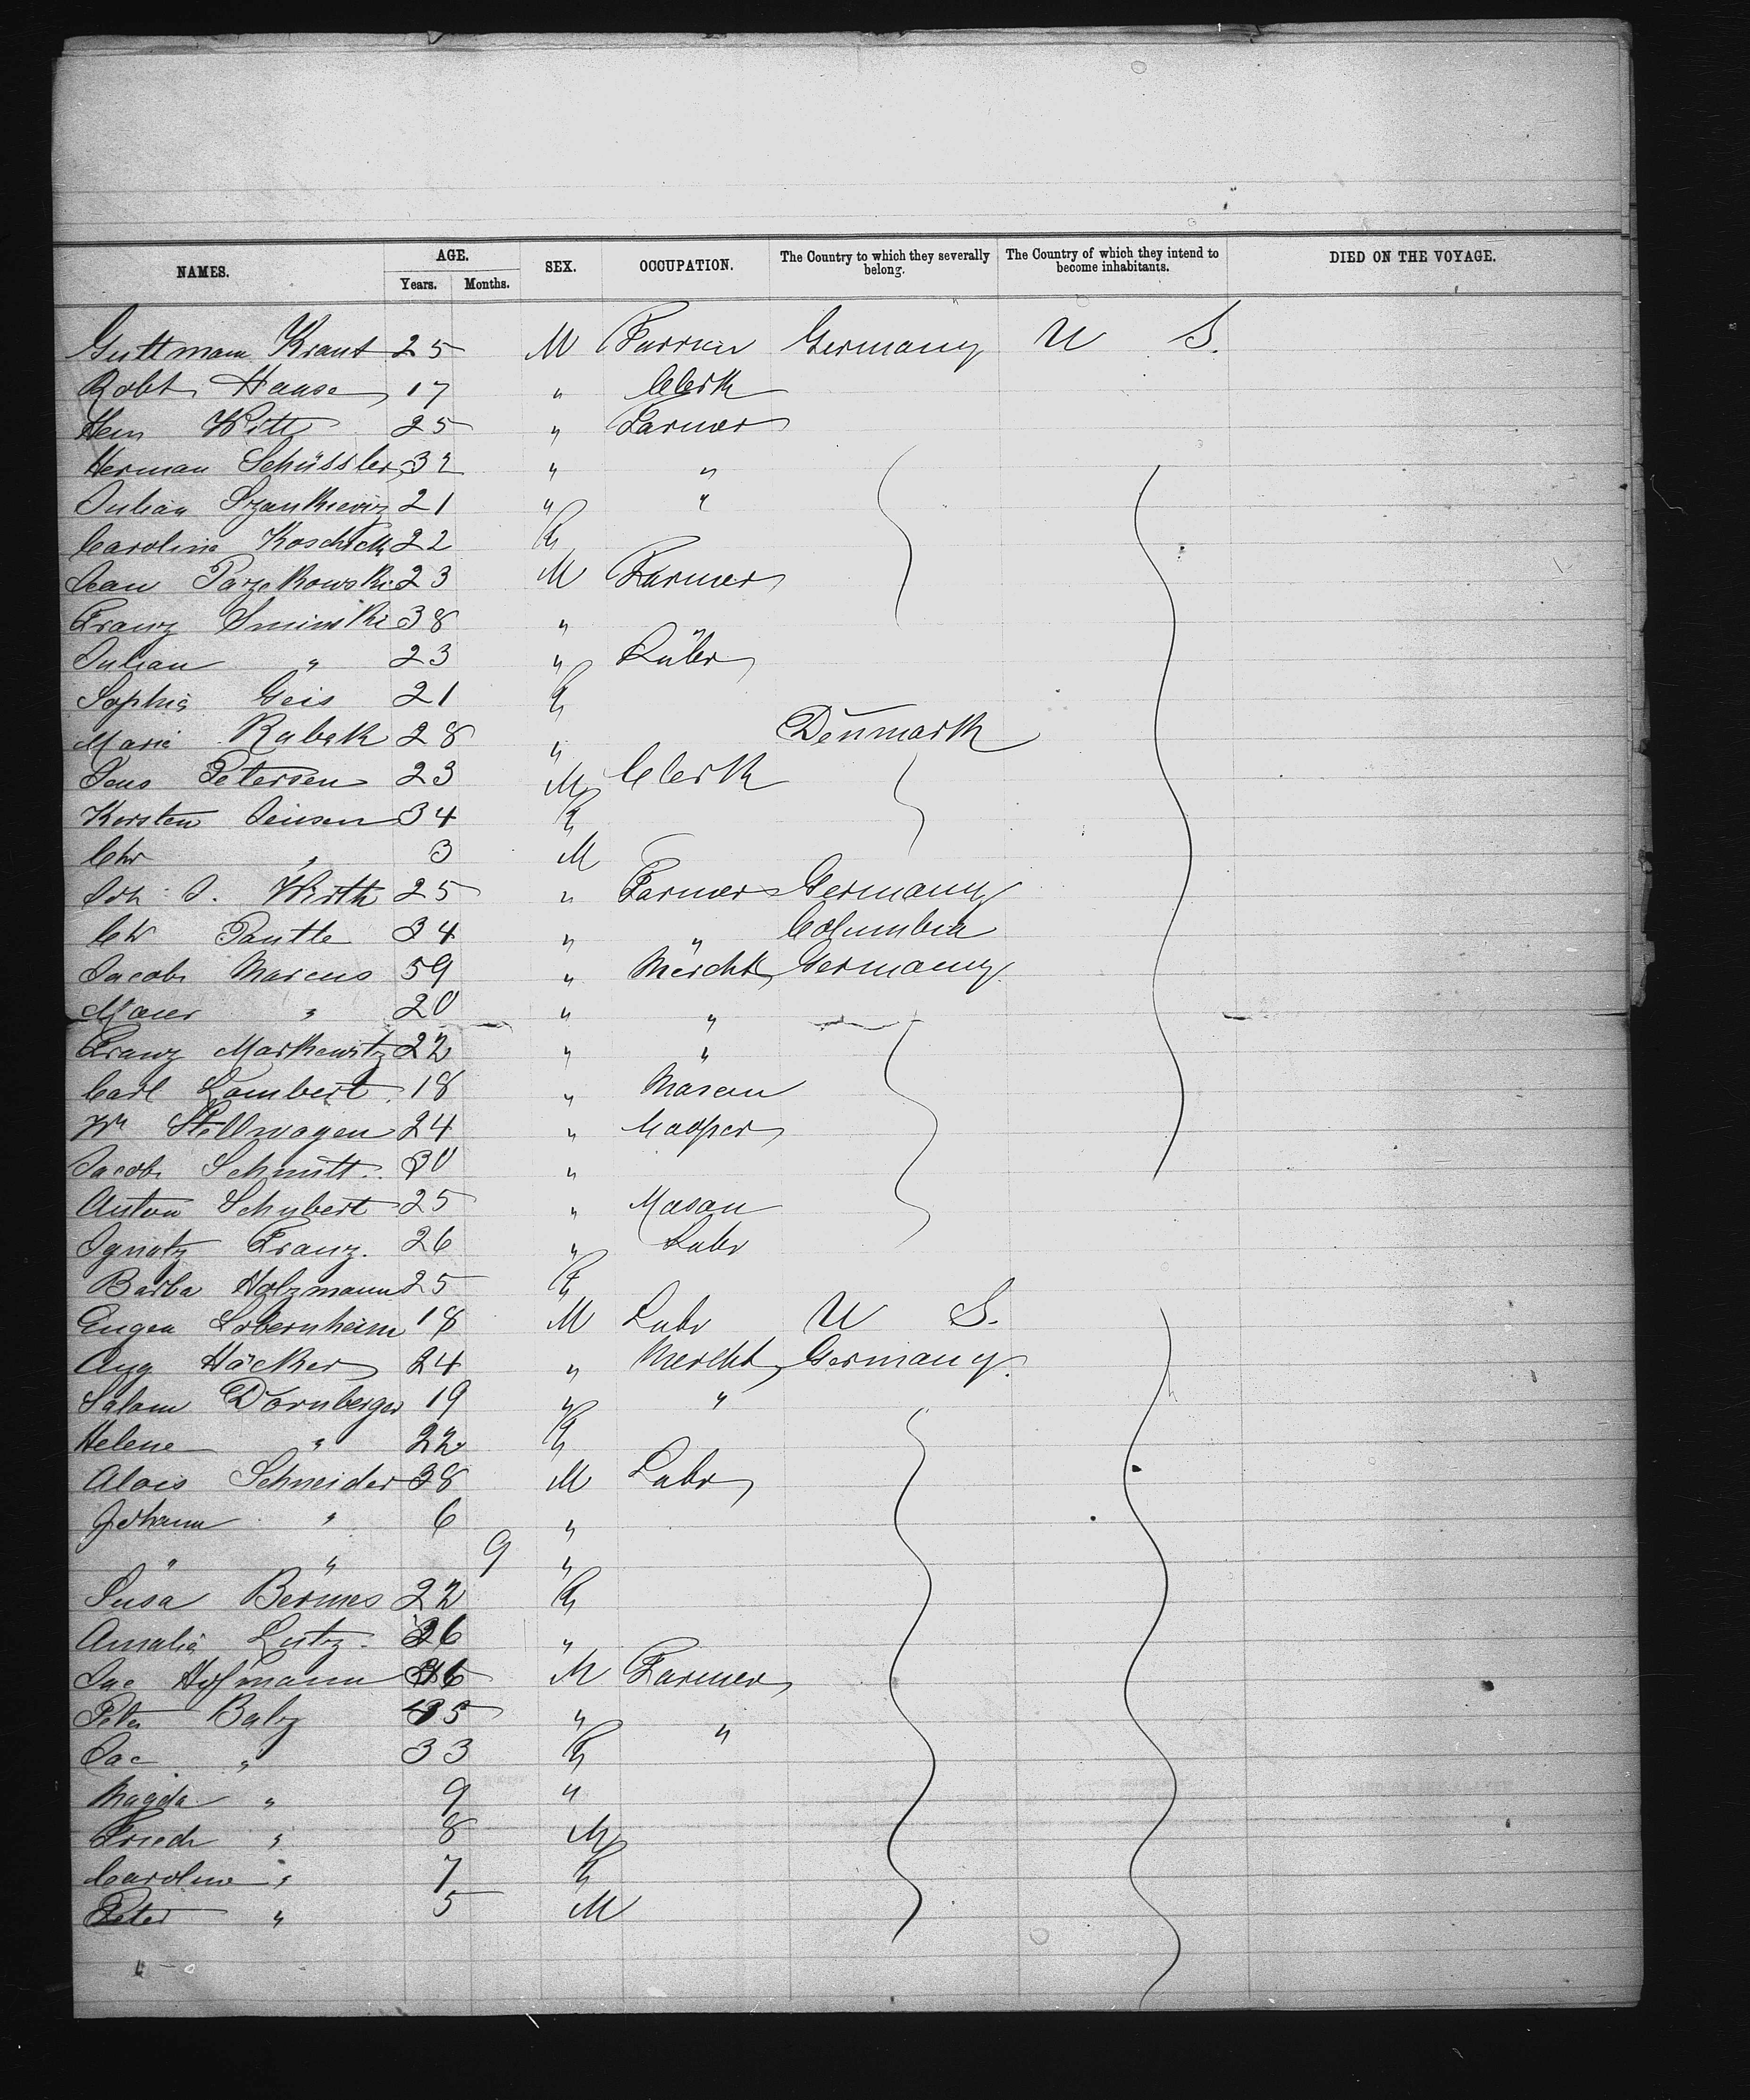 NAMES. AGE. Years. Months. SEX. OCCUPATION. The Country to which they severally belong. The Country of which they intend to become inhabitants. DIED ON THE VOYAGE.
Guttmann Kraut 25 M Furrier Germany U S.
Robt Hause 17 " Clerk
Hein Witt 25 " Farmer
Herman Schüssler 32 " "
Julian Szankiewiz 21 " "
Caroline Koschick 22 F
Jean Parzekowski 23 M Farmer
Franz Sminski 38 " "
Julian " 23 " Labr
Sophie Geis 21 F
Marie Rabek 28 " Denmark
Jens Petersen 23 M Clerk
Kersten Jensen 34 F
Chr " 3 M
Joh. J. Wirth 25 " Farmer Germany
Chr Pantle 34 " " Columbia
Jacob Marcus 59 " Mercht Germany
20 " "
Franz Markewitz 22 " "
Carl Lambert 18 " Mason
Wm Stellwagen 24 " Cooper
Jacob Schmitt 30 "
Anton Schubert 25 " Mason
Ignatz Franz. 26 " Labr
Barba Holzmann 25 F
Eugen Lobernheim 18 M Labr U S.
Aug Häcker 24 " Mercht Germany.
Salom Dornberger 19 " "
Helene " 22 F
Alois Schneider 38 M Labr
Johann " 6 "
" " 9 "
Susa Bermes 22 F
Amalie Lutz 26 "
Jac Hofmann M Farmer
Peter Balz 35 " "
Jac " 33 F
Magda " 9 "
Friedr " 8 M
Caroline " 7 F
Peter " 5 M